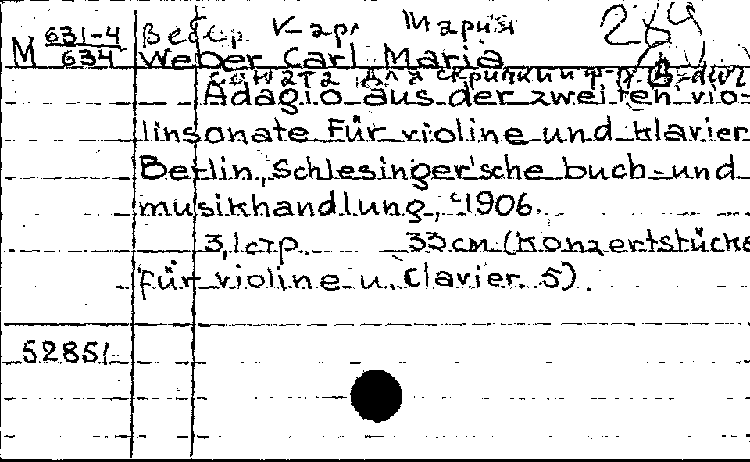 Вебер Карл Мария 284
M 631-4/634 Weber Carl Maria
Соната для скрипки и ф-п.
Adagio aus der zweiten vio-
linsonate Für violine und klavier
Berlin, Schlesinger'sche buch-und
musikhandlung, c1906.
3,1 стр. 33 см (Konzertstücke
für violine u. Clavier. 5).
52851